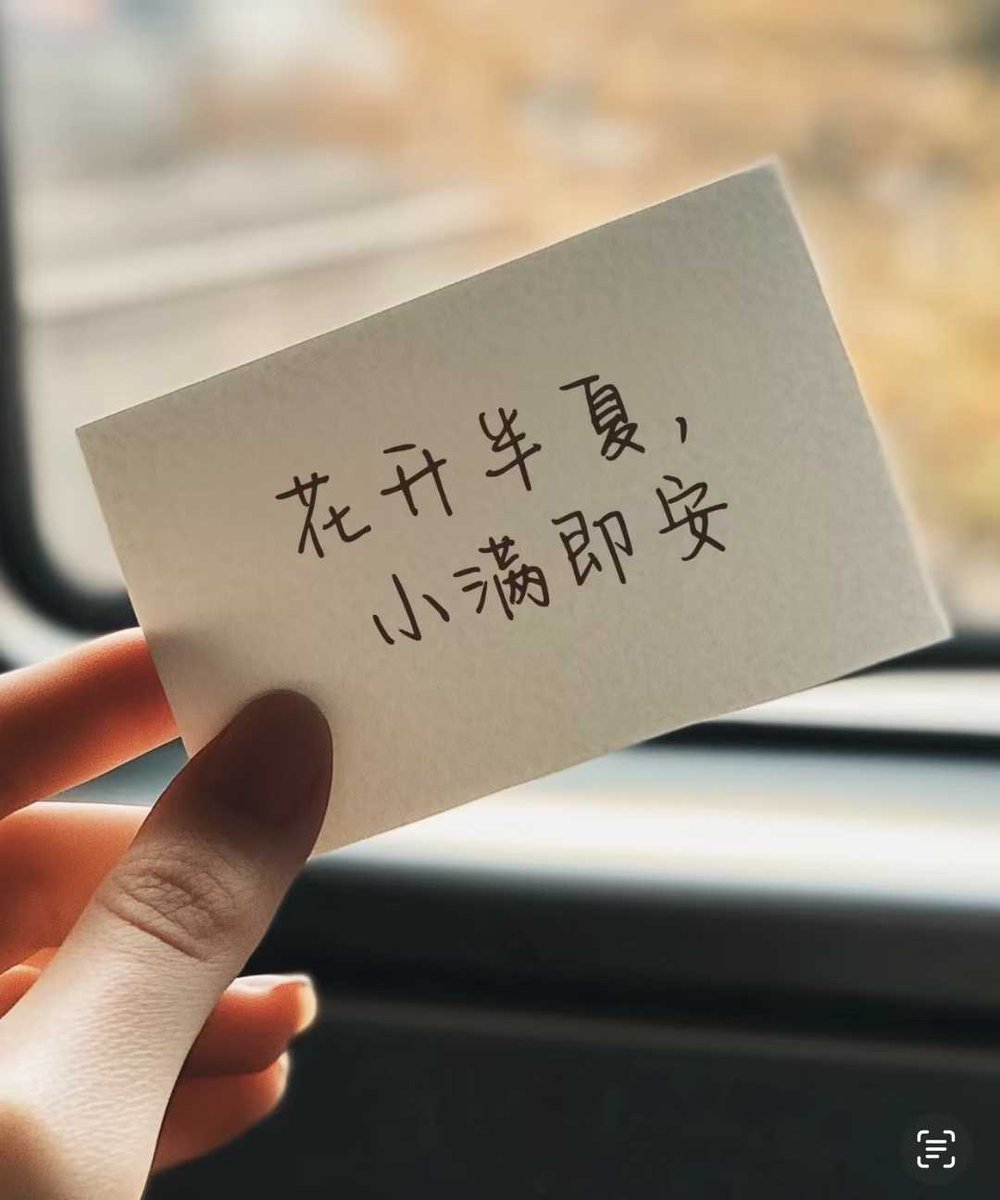 花开半夏,
小满即安